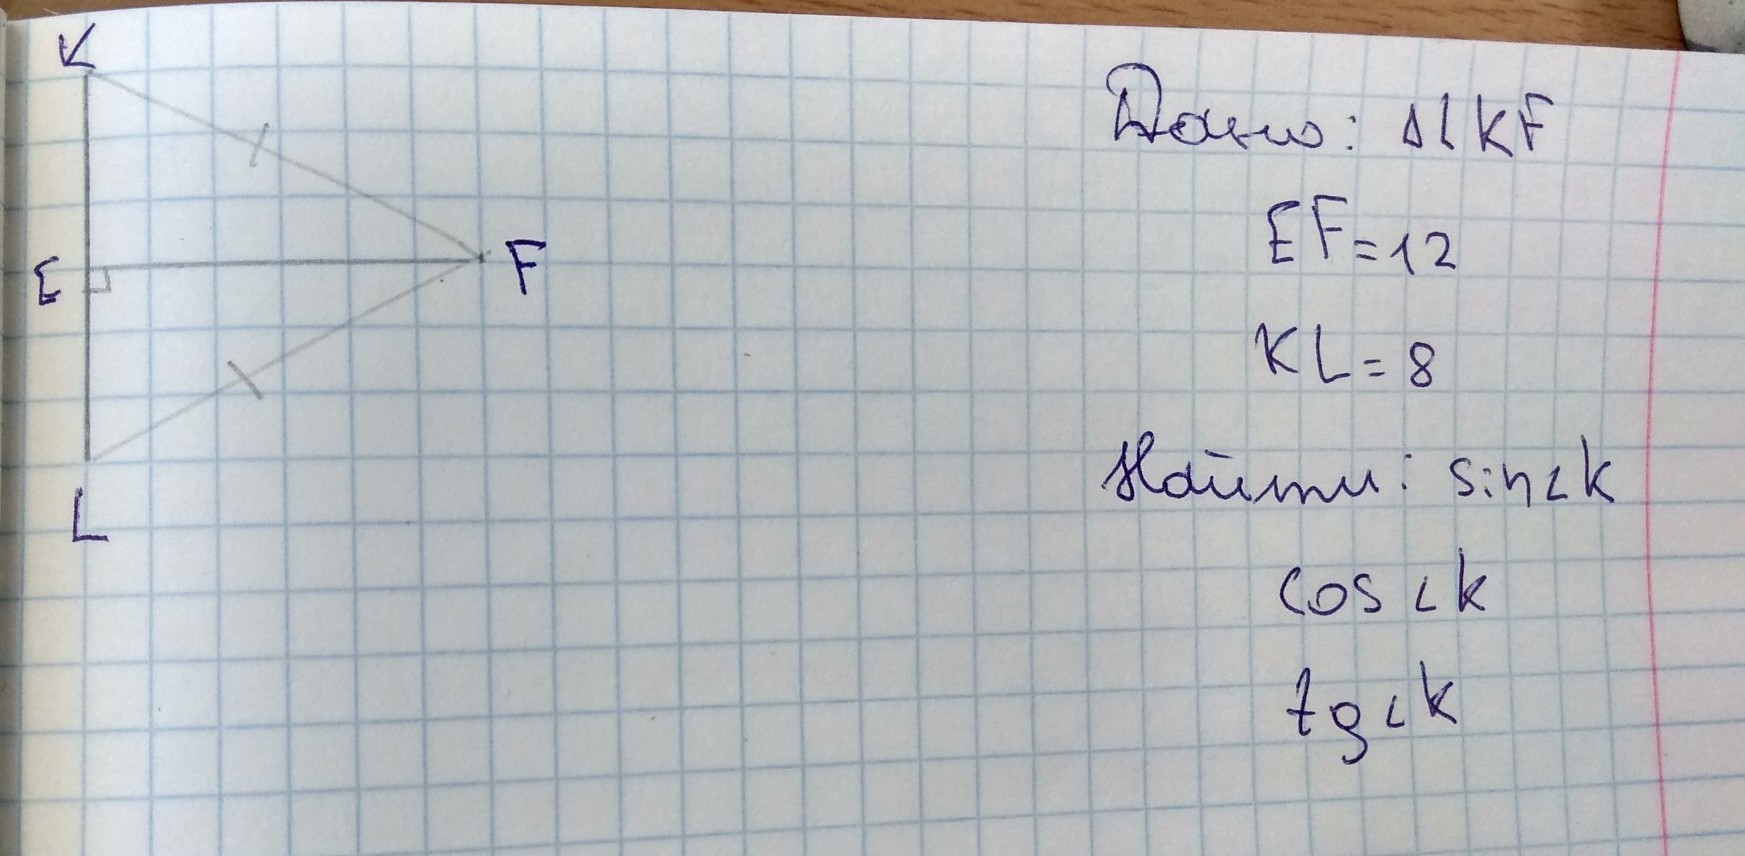 K
E
F
L
Дано: ΔLKF
EF=12
KL=8
Найти: sin∠K
cos∠K
tg∠K